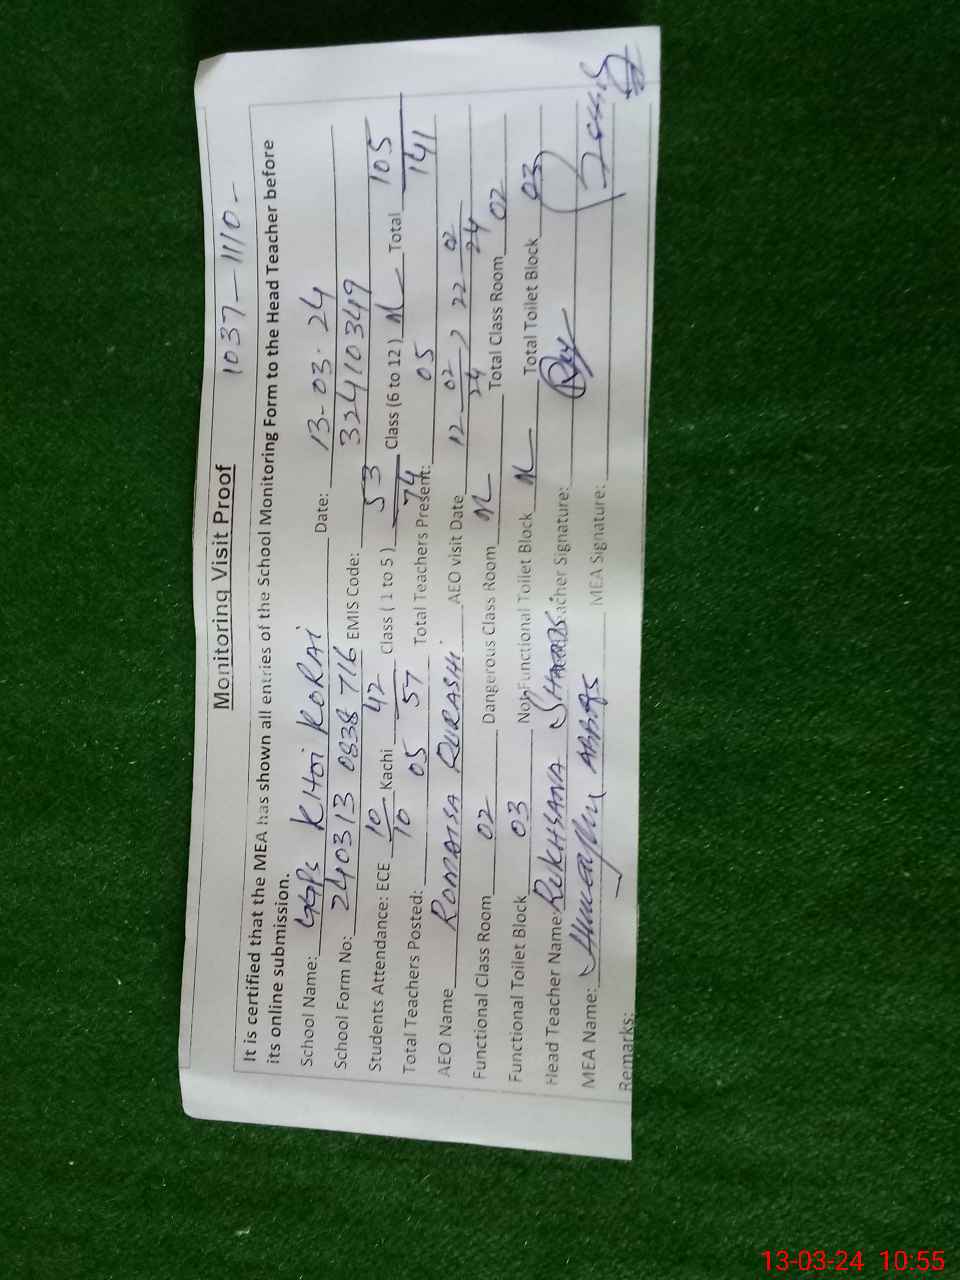 Monitoring Visit Proof
1037-1110-
It is certified that the MEA has shown all entries of the School Monitoring Form to the Head Teacher before
its online submission.
School Name: GGPS KHOI KORAI Date: 13-03-24
School Form No: 240313 0838 716 EMIS Code: 32410349
Students Attendance: ECE 10/10 Kachi 42/57 Class ( 1 to 5 ) 53/74 Class (6 to 12 ) Total 105/141
Total Teachers Posted: 05 Total Teachers Present: 05
AEO Name ROMAISA QURASHI AEO visit Date 12-02/24, 22-02/24
Functional Class Room 02 Dangerous Class Room Total Class Room 02
Functional Toilet Block 03 Non Functional Toilet Block Total Toilet Block 03
Head Teacher Name: RUKHSANA eacher Signature:
MEA Name: ABBAS MEA Signature:
Remarks:
13-03-24 10:55